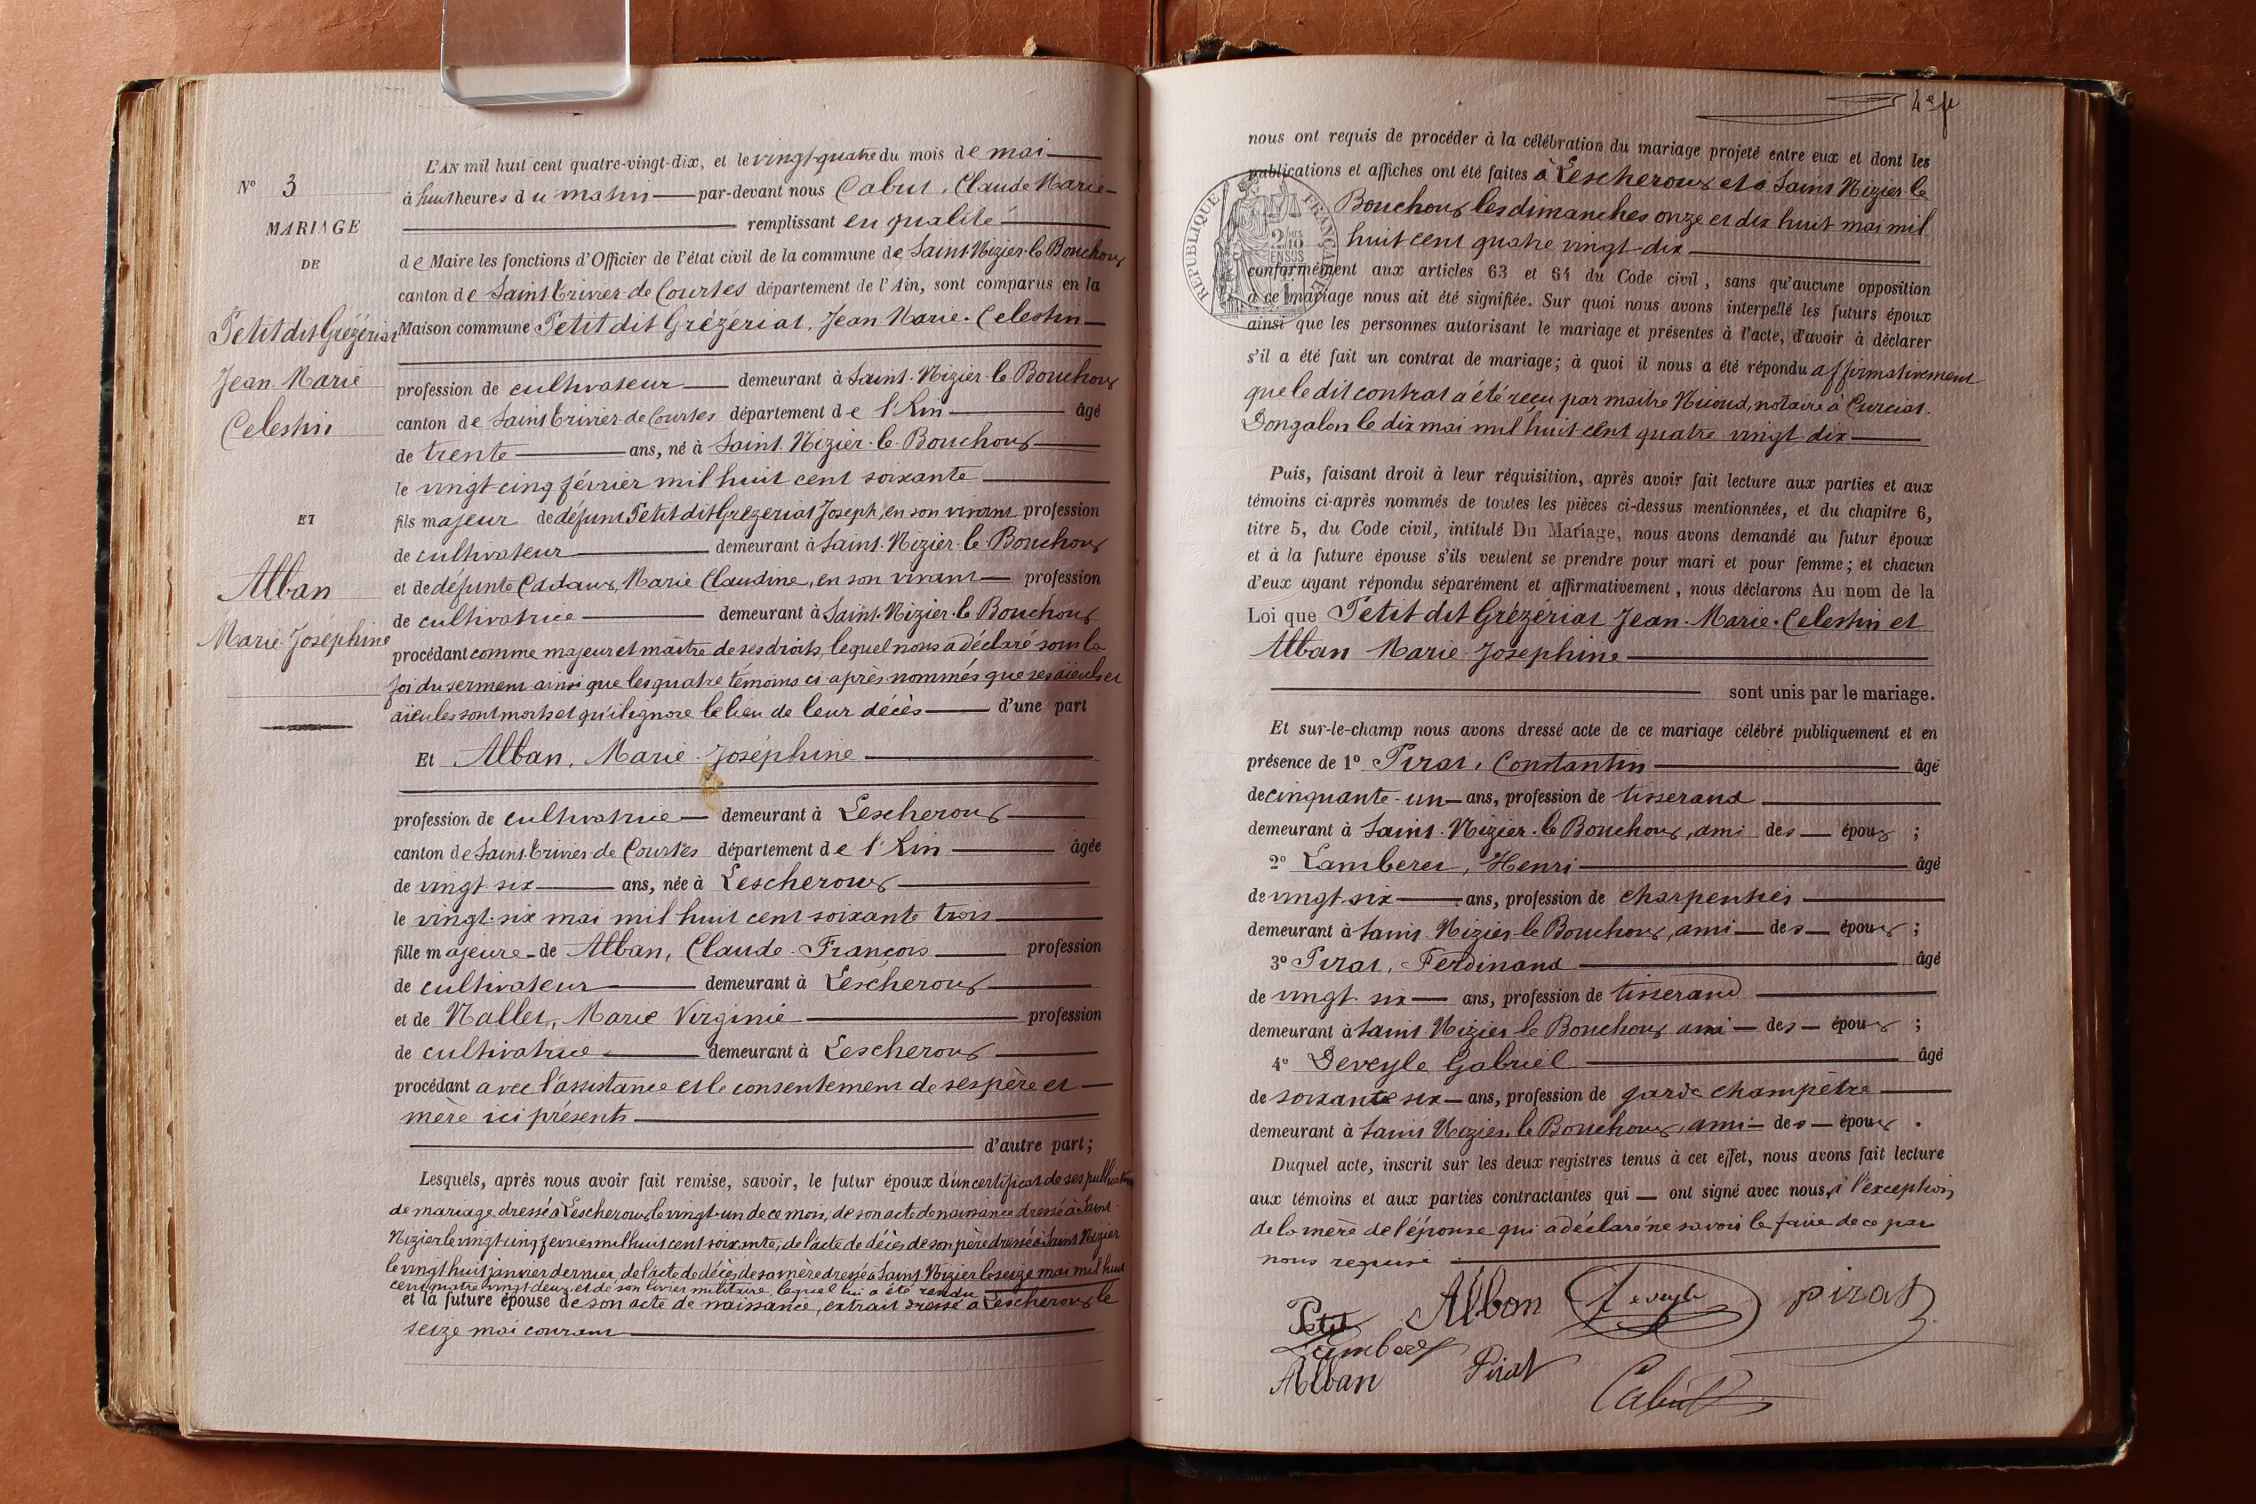 N° 3
MARIAGE
DE
Petit dit Grézériat
Jean Marie
Celestin
ET
Alban
Marie Joséphine
L'AN mil huit cent quatre-vingt-dix, et le vingt-quatre du mois de mai
à huit heures du matin par-devant nous Cabut, Claude Marie
remplissant en qualité
de Maire les fonctions d'Officier de l'état civil de la commune de Saint-Nizier-le-Bouchoux
canton de Saint Trivier de Courtes département de l'Ain, sont comparus en la
Maison commune Petit dit Grézériat, Jean Marie Celestin
profession de cultivateur demeurant à Saint-Nizier-le Bouchoux
canton de Saint Trivier de Courtes département de l'Ain âgé
de trente ans, né à Saint-Nizier-le-Bouchoux
le vingt-cinq février mil huit cent soixante
fils majeur de défunt Petit dit Grézériat Joseph, en son vivant profession
de cultivateur demeurant à Saint-Nizier-le-Bouchoux
et de défunte Marie Claudine, en son vivant profession
de cultivatrice demeurant à Saint-Nizier-le Bouchoux
procédant comme majeur et maître de ses droits, lequel nous a déclaré sous la
foi du serment ainsi que les quatre témoins ci-après nommés que ses aïeuls et
aïeules sont morts et qu'il ignore le lieu de leur décès d'une part
Et Alban, Marie Joséphine
profession de cultivatrice demeurant à Lescheroux
canton de Saint-Trivier de Courtes département de l'Ain âgée
de vingt six ans, née à Lescheroux
le vingt-six mai mil huit cent soixante trois
fille majeure de Alban, Claude-François profession
de cultivateur demeurant à Lescheroux
et de Nallet, Marie Virginie profession
de cultivatrice demeurant à Lescheroux
procédant avec l'assistance et le consentement de ses père et
mère ici présents
d'autre part;
Lesquels, après nous avoir fait remise, savoir, le futur époux d'un certificat de ses publications
de mariage dressé à Lescheroux le vingt-un de ce mois, de son acte de naissance dressé à Saint-
Nizier le vingt cinq février mil huit cent soixante, de l'acte de décès de son père dressé à Saint Nizier
le vingt huit janvier dernier, de l'acte de décès de sa mère dressé à Saint Nizier le seize mai mil huit
cent quatre vingt deux, et de son livret militaire, lequel lui a été rendu
et la future épouse de son acte de naissance, extrait dressé à Lescheroux le
seize mai courant
4e f
nous ont requis de procéder à la célébration du mariage projeté entre eux et dont les
publications et affiches ont été faites à Lescheroux et à Saint Nizier le
Bouchoux les dimanches onze et dix huit mai mil
huit cent quatre vingt-dix
RÉPUBLIQUE FRANÇAISE
2/10 EN SUS
conformément aux articles 63 et 64 du Code civil, sans qu'aucune opposition
à ce mariage nous ait été signifiée. Sur quoi nous avons interpellé les futurs époux
ainsi que les personnes autorisant le mariage et présentes à l'acte, d'avoir à déclarer
s'il a été fait un contrat de mariage; à quoi il nous a été répondu affirmativement
que le dit contrat a été reçu par maître Nicoud, notaire à Curciat-
Dongalon le dix mai mil huit cent quatre vingt dix
Puis, faisant droit à leur réquisition, après avoir fait lecture aux parties et aux
témoins ci-après nommés de toutes les pièces ci-dessus mentionnées, et du chapitre 6,
titre 5, du Code civil, intitulé Du Mariage, nous avons demandé au futur époux
et à la future épouse s'ils veulent se prendre pour mari et pour femme; et chacun
d'eux ayant répondu séparément et affirmativement, nous déclarons Au nom de la
Loi que Petit dit Grézériat Jean-Marie-Celestin et
Alban Marie-Josephine
sont unis par le mariage.
Et sur-le-champ nous avons dressé acte de ce mariage célébré publiquement et en
présence de 1° Pirat, Constantin âgé
de cinquante-un ans, profession de tisserand
demeurant à Saint-Nizier-le Bouchoux, ami des époux ;
2° Lamberet, Henri âgé
de vingt-six ans, profession de charpentier
demeurant à Saint Nizier-le Bouchoux, ami des époux ;
3° Pirat, Ferdinand âgé
de vingt-six ans, profession de tisserand
demeurant à Saint Nizier le Bouchoux ami des époux ;
4° Deveyle Gabriel âgé
de soixante six ans, profession de garde champêtre
demeurant à Saint Nizier, le Bouchoux, ami des époux .
Duquel acte, inscrit sur les deux registres tenus à cet effet, nous avons fait lecture
aux témoins et aux parties contractantes qui ont signé avec nous, à l'exception
de la mère de l'épouse qui a déclaré ne savoir le faire de ce par
nous requise
Petit Albon Deveyle pirat
Lamberet
Alban Pirat
Cabut